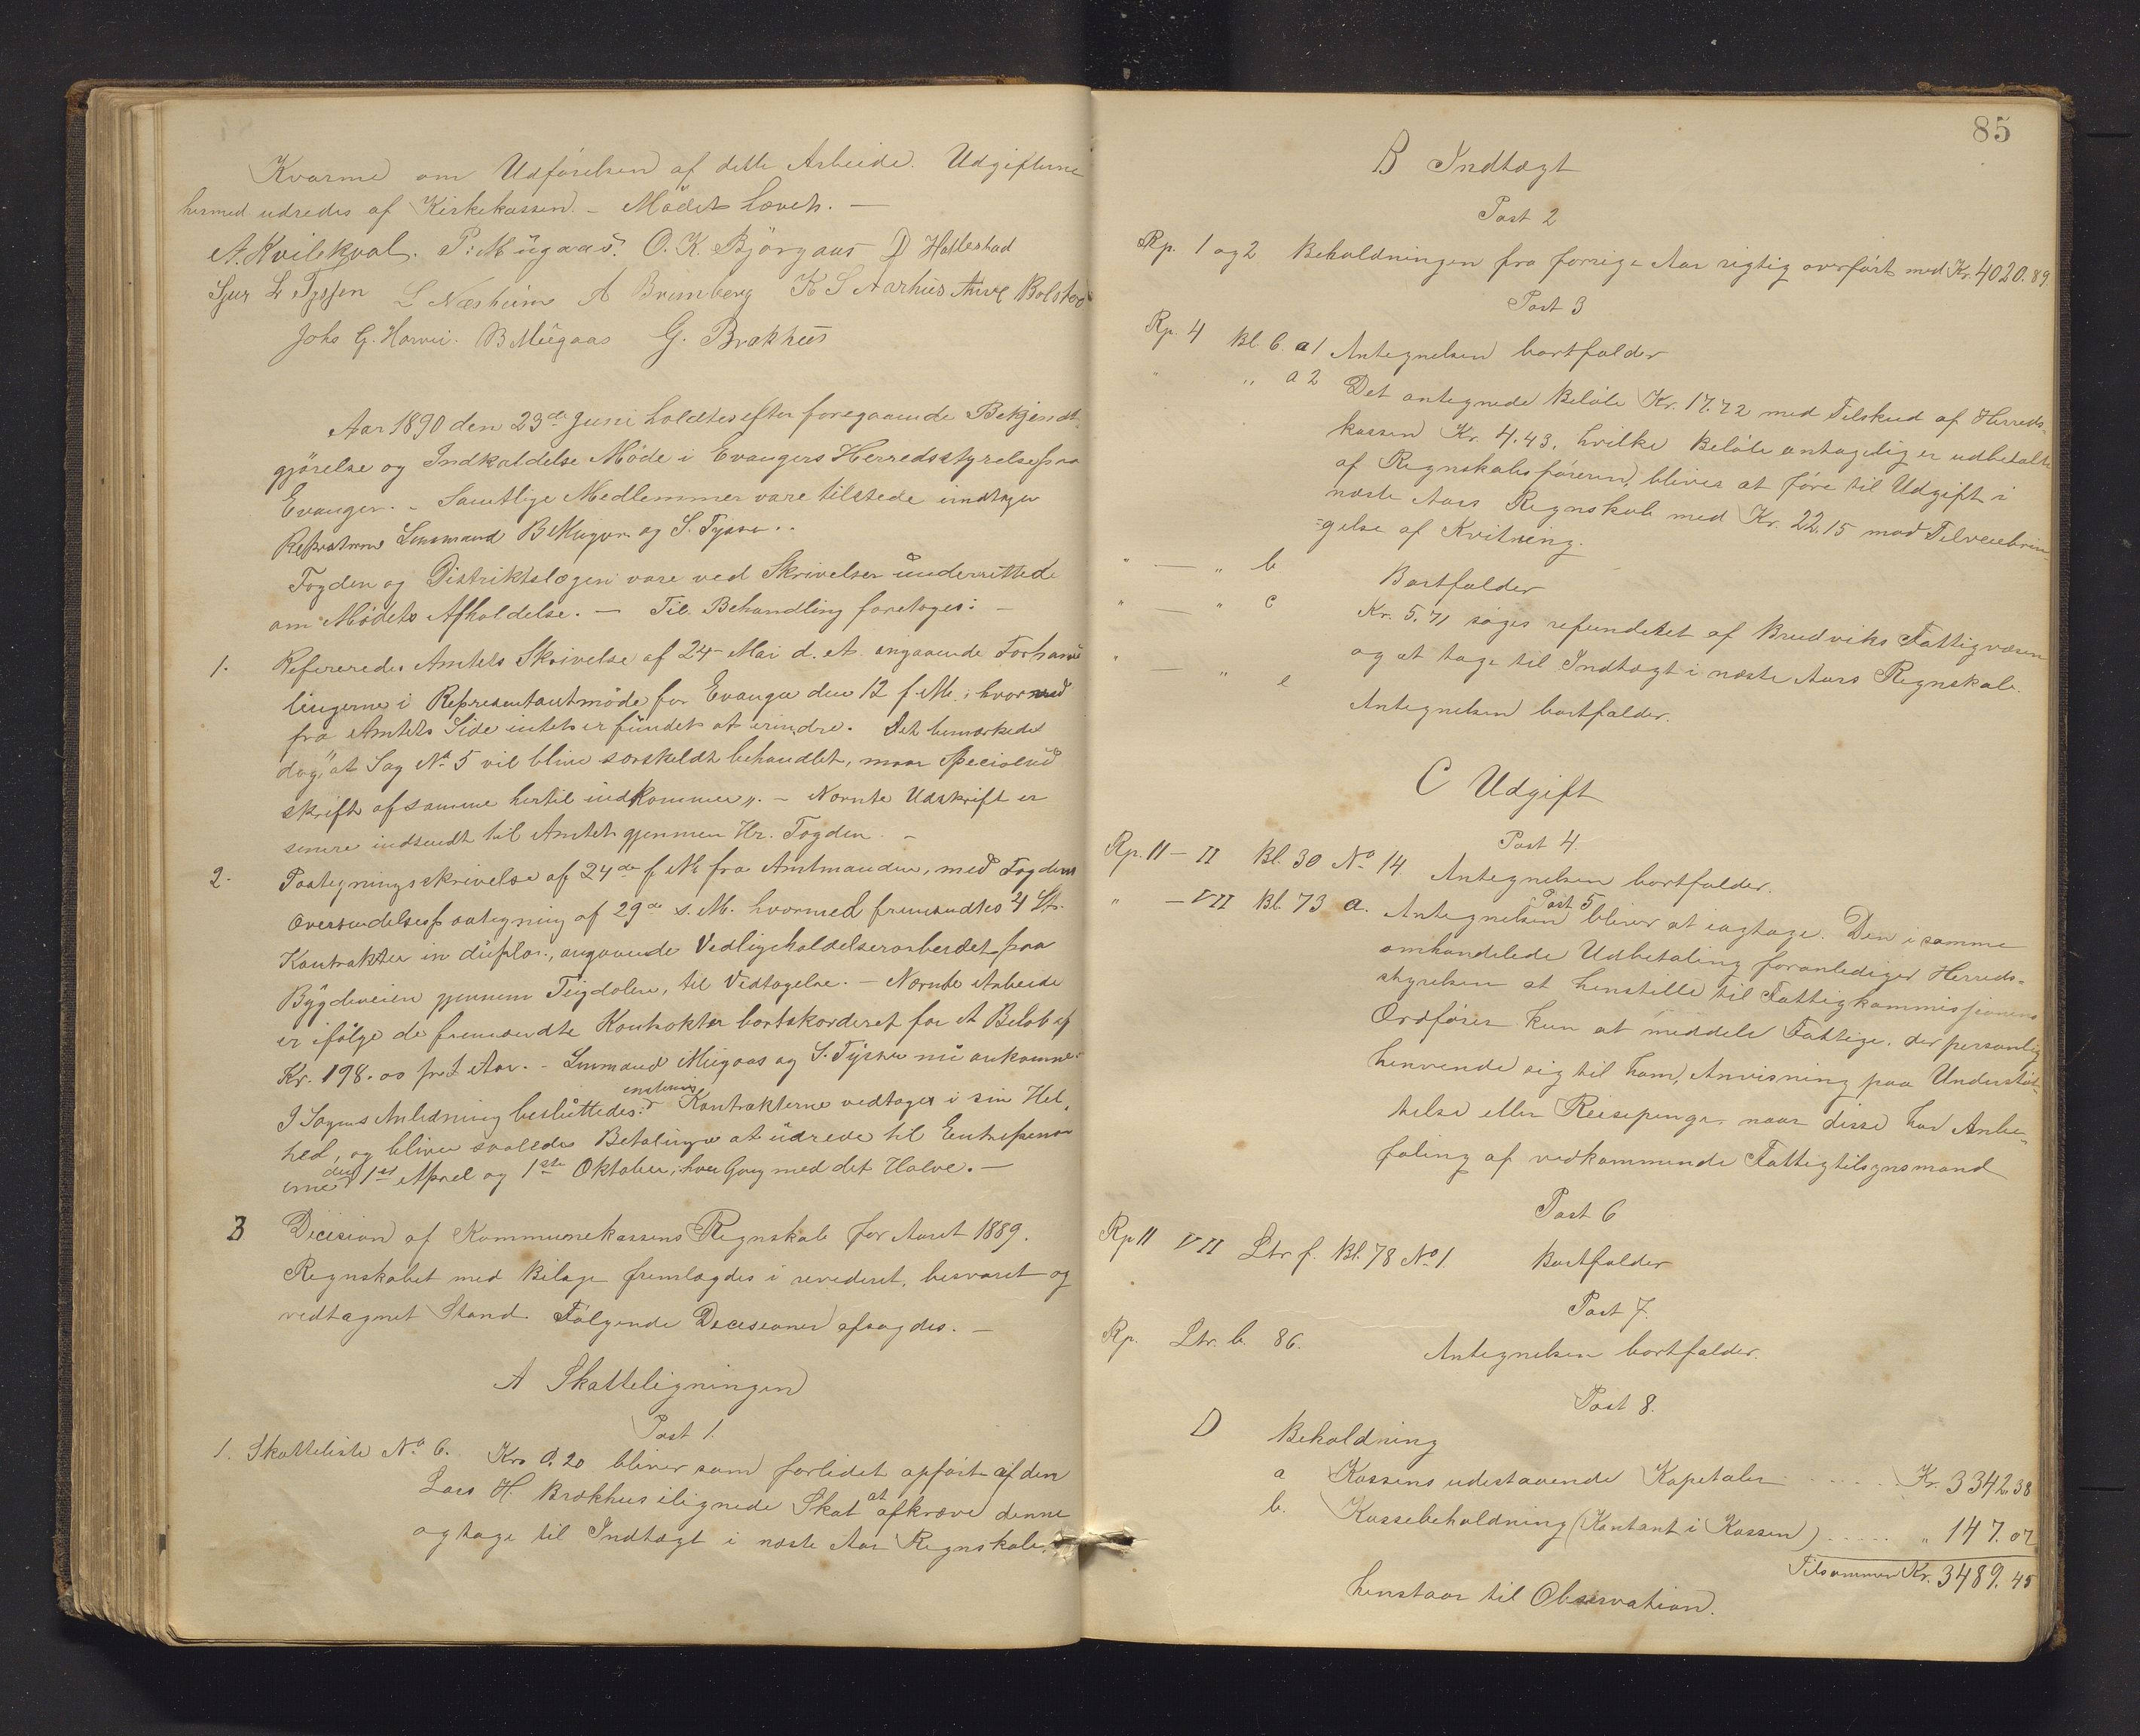 Kvarme om Udførelsen af dette Arbeide. Udgifterne
hermed udredes af Kirkekassen. – Mödet hævet. —
A. Kvilekval. P: Mügaas. O. K. Björgaas D Hallestad
Sjur L Tyssen L Næsheim A Brunberg K S Aarhus Anve Bolstad
Johs G. Horvei. B Mügaas G. Brakhus
Aar 1890 den 23de Juni holdtes efter foregaaende Bekjendt-
gjørelse og Indkaldelse Möde i Evangers Herredsstyrelse paa
Evanger. – Samtlige Medlemmer vare tilstede undtagen
Repræstnne Lensmand B Mugaas og S. Tyssen..
Fogden og Distriktslægen vare ved Skrivelser underrettede
om Mödets Afholdelse. — Til Behandling foretoges: —
1. Refereredes Amtets Skrivelse af 24 Mai d. A. angaaende Forhand
lingerne i Representantmöde for Evanger den 12 f. M., hvorved
fra Amtets Side intet er fundet at erindre. Det bemærkedes
dog "at Sag No 5 vil blive særskildt behandlet, naar Specialud
skrift af samme hertil indkommer". – Nævnte Udskrift er
senere indsendt til Amtet gjennem Hr. Fogden. –
2. Paategningsskrivelse af 24de f. M. fra Amtmanden, med Fogdens
Oversendelsespaategning af 29de s. M. hvormed fremsendtes 4 St.
Kontrakter in duplo., angaaende Vedligeholdelsesarbeidet paa
Bygdeveien gjennem Teigdalen, til Vedtagelse. – Nævnte Arbeide
er ifølge de fremsendte Kontrakter bortakorderet for et Beløb af
Kr. 198.00 pr. 1 Aar. – Lensmand Mügaas og S. Tyssen nu ankomne.
I Sagens Anledning besluttedes: enstemmig Kontrakterne vedtages i sin Hel-
hed, og bliver saaledes Betalingen at udrede til Entreprenør
erne den 1st April og 1ste Oktober, hver Gang med det Halve. —
3 Decision af Kommunekassens Regnskab for Aaret 1889.
Regnskabet med Bilage fremlagdes i revideret, besvaret og
vedtegnet Stand. Følgende Decisioner afsagdes. —
A Skatteligningen
Post 1.
1. Skatteliste No 6. Kro 0.20 bliver som forlidet opført af den
Lars H. Brækhus ilignede Skat at afkræve denne
og tage til Indtægt i næste Aar Regnskab.
85
B Indtægt
Post 2
Rp. 1 og 2 Beholdningen fra forrige Aar rigtig overført med Kr. 4020.89
Post 3
Rp. 4 Bl. 6. a 1 Antegnelsen bortfalder
" " a 2 Det antegnede Beløb Kr. 17.72 med Tilskud af Herreds-
kassen Kr. 4.43, hvilke Beløb antagelig er udbetalte
af Regnskabsføreren, bliver at føre til Udgift i
næste Aars Regnskab med Kr. 22.15 mod Tilveiebrin
=gelse af Kvitning.
" — " b Bortfalder
" — " c Kr. 5.71 søges refunderet af Bruviks Fattigvæsen
og at tage til Indtægt i næste Aars Regnskab.
" — " e Antegnelsen bortfalder.
C Udgift
Post 4.
Rp. 11 – II Bl. 30 No 14. Antegnelsen bortfalder.
Post 5
" – VII Bl. 73 a. Antegnelsen bliver at iagtage. Den i samme
omhandlede Udbetaling foranlediger Herreds-
styrelsen at henstille til Fattigkommissionens
Ordfører kun at meddele Fattige, der personlig
henvende sig til ham, Anvisning paa Understøt-
telse eller Reisepenge, naar disse har Anbe-
faling af vedkommende Fattigtilsynsmand
Post 6
Rp 11 VII Ltr f. Bl. 78 No 1. Bortfalder
Post 7.
Rp. Ltr. b. 86. Antegnelsen bortfalder.
Post 8.
D Beholdning
a Kassens udestaaende Kapitaler . . . . . . Kr. 3342.38
b. Kassebeholdning (Kontant i Kassen) . . . . . " 147.07
Tilsammen Kr. 3489.45
henstaar til Observation.